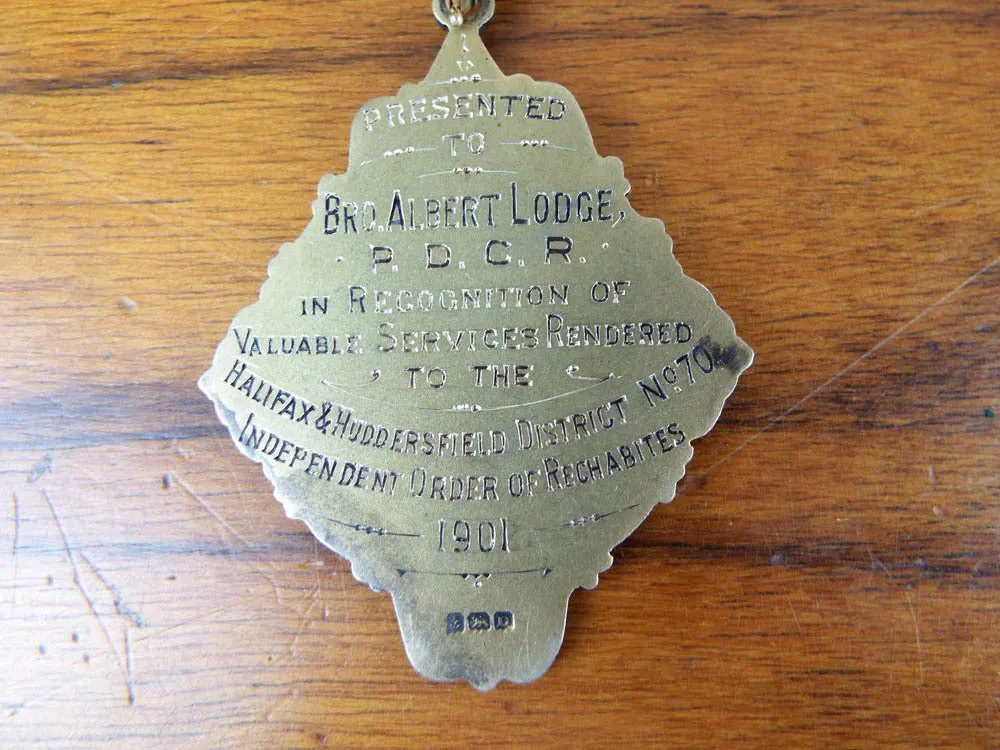 PRESENTED
TO
BRO. ALBERT LODGE,
P. D. C. R.
IN RECOGNITION OF
VALUABLE SERVICES RENDERED
TO THE
HALIFAX & HUDDERSFIELD DISTRICT No. 70.
INDEPENDENT ORDER OF RECHABITES
1901